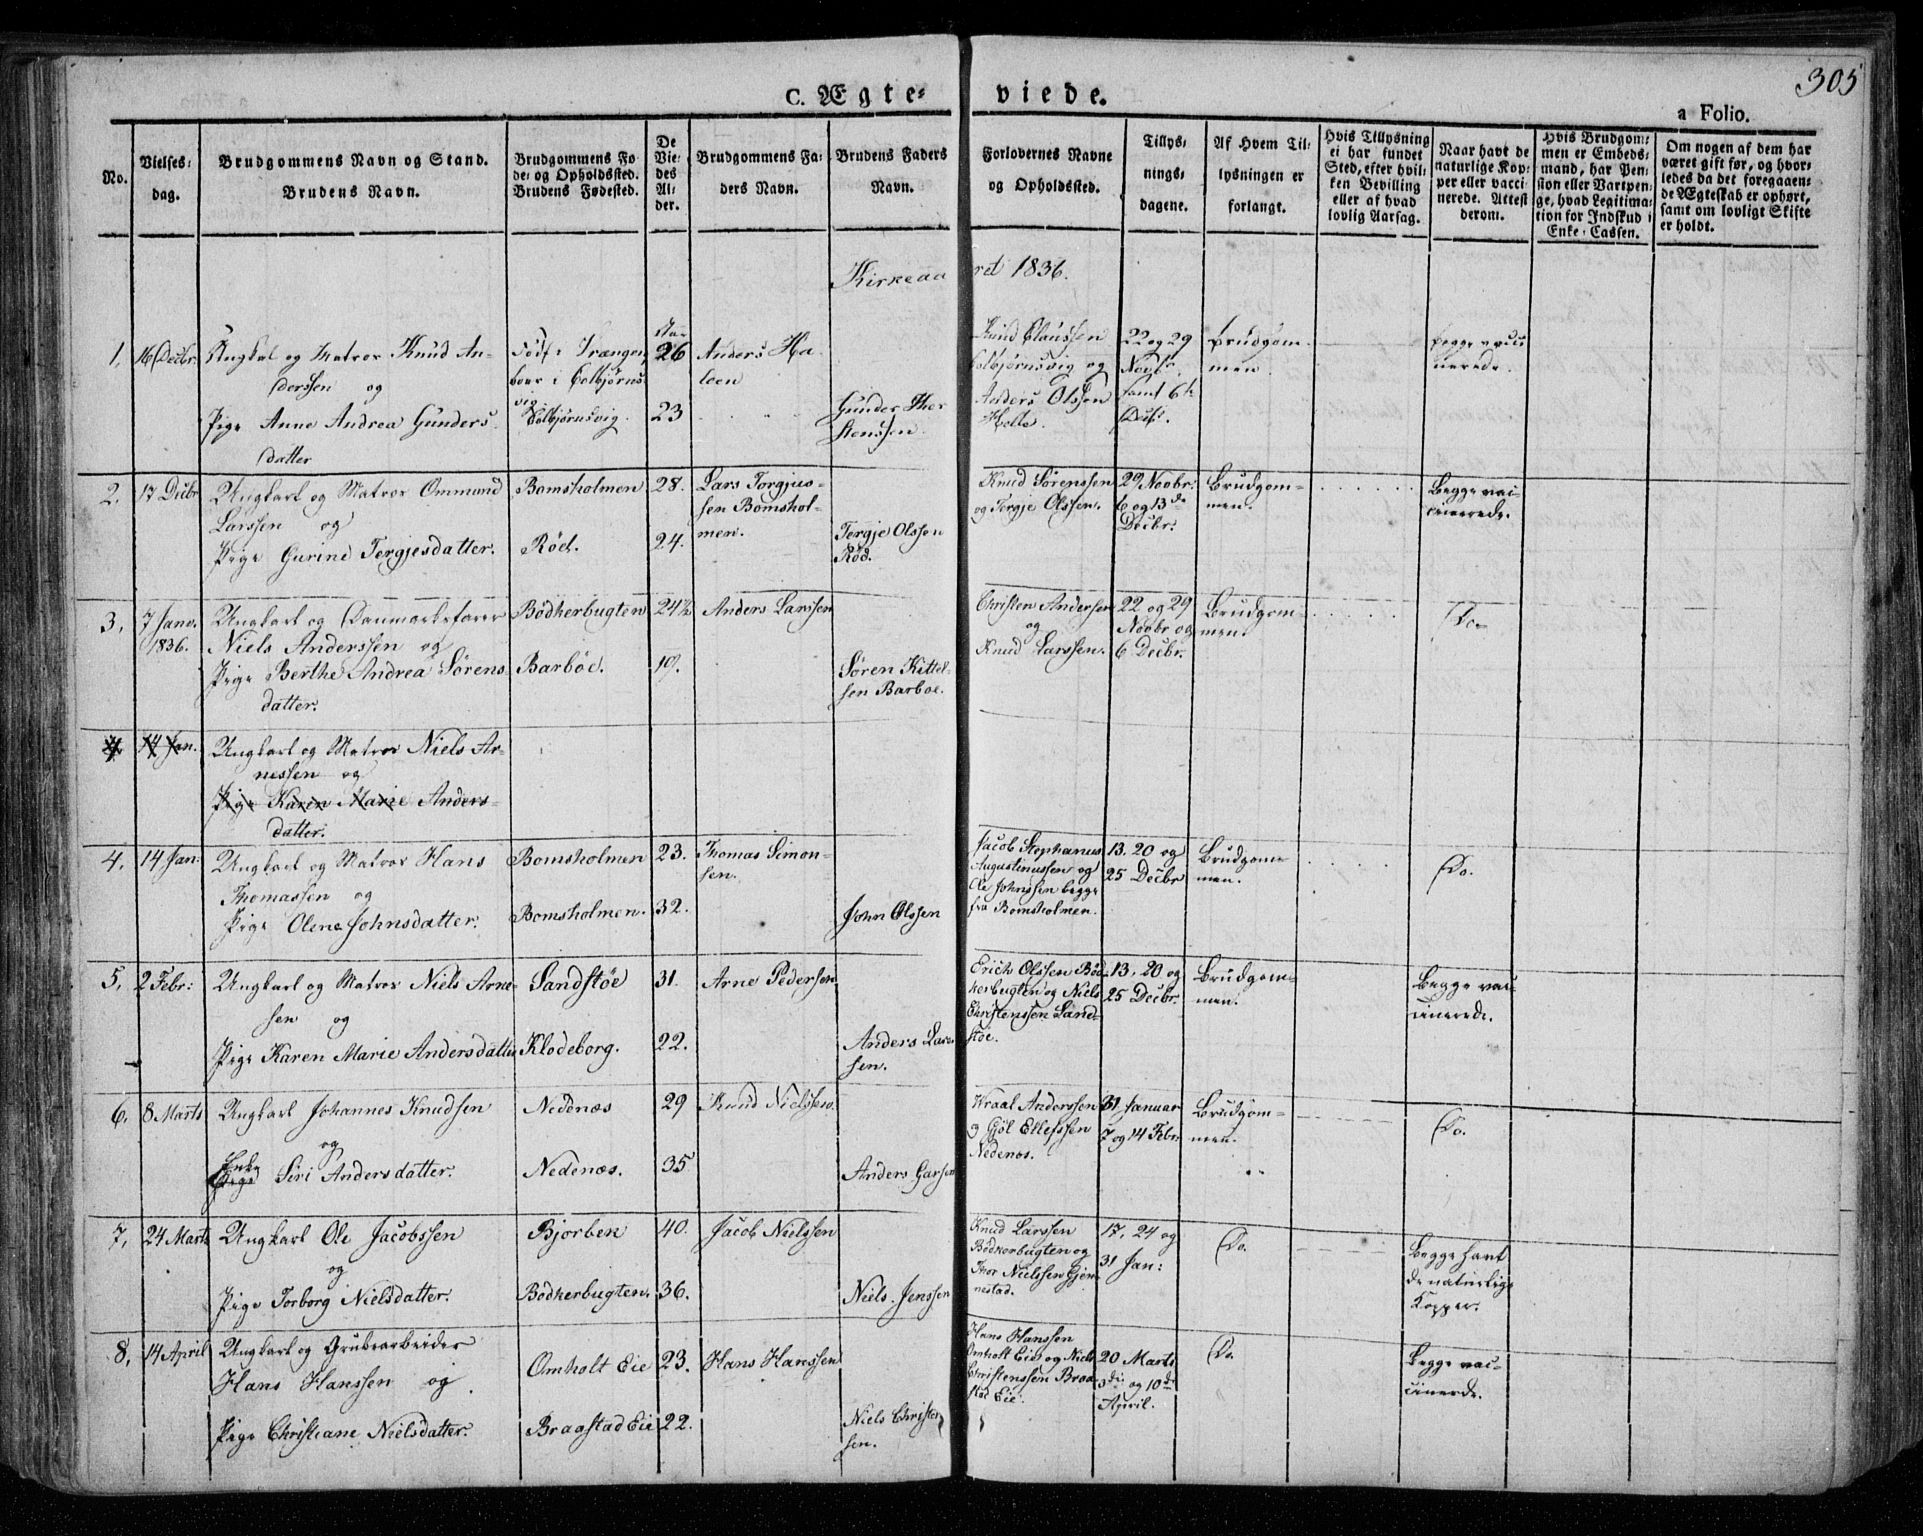 305
C. Ægte-viede.
a Folio.
No.
Vielses-
dag.
Brudgommens Navn og Stand.
Brudens Navn.
Brudgommens Fø-
de- og Opholdssted.
Brudens Fødested.
De
Vie-
des
Al-
der.
Brudgommens Fa-
ders Navn.
Brudens Faders
Navn.
Forlovernes Navne
og Opholdssted.
Tillys-
nings-
dagene.
Af Hvem Til-
lysningen er
forlangt.
Hvis Tillysning
ei har fundet
Sted, efter hvil-
ken Bevilling
eller af hvad
lovlig Aarsag.
Naar havt de
naturlige Kop-
per eller vacci-
nerede. Attest
derom.
Hvis Brudgom-
men er Embeds-
mand, har Pen-
sion eller Vartpen-
ge, hvad Legitima-
tion for Indskud i
Enke-Cassen.
Om nogen af dem har
været gift før, og hvor-
ledes da det foregaaen-
de Ægteskab er ophørt,
samt om lovligt Skifte
er holdt.
Kirkeaaret 1836.
1. 16 Decbr. Ungkal og Matros Knud An-
derssen og
Pige Anne Andrea Gunders
datter
Colbjørnsvig.
Aar
26
23
Anders Ha
leen
Gunder Ther
stenssen
Knud Claussen
Colbjørnsvig og
Anders Olssen
Helle.
22 og 29
Novbr.
samt 6te
Decbr.
Brudgom-
men.
Begge vacci
nerede.
2. 17 Decbr Ungkarl og Matros Ommund
Larssen og
Pige Gurine Tergjesdatter.
Bomsholmen
Röd.
28.
24.
Lars Torgjus-
sen Bomshol-
men.
Tergje Olssen
Röd.
Knud Sörenssen
og Tergje Olssen.
29 Novbr:
6 og 13de
Decbr:
Brudgom-
men.
Begge vac-
cinerede.
3. 7 Janv.
1836.
Ungkarl og Danmarksfarer
Niels Anderssen og
Pige Berthe Andrea Sörens-
datter.
Bödkerbugten
Barböe.
24½
19.
Anders Larssen
Søren Kittel-
sen Barboe.
Christen Andersen
og
Knud Larssen.
22 og 29
Novbr og
6 Decbr.
Brudgom-
men.
Do
4. 14 Jan. Ungkarl og Matros Niels Ar-
nessen og
Pige Karen Marie Anders-
datter.
4. 14 Jan: Ungkarl og Matros Hans
Thomassen og
Pige Olene Johnsdatter.
Bomsholmen
Bomsholmen.
23.
32.
Thomas Simon-
sen.
John Olssen
Jacob Stephanus
Augustinussen og
Ole Johnssen begge
fra Bomsholmen.
13. 20 og
25 Decbr
Brudgom-
men.
Do.
5. 2 Febr: Ungkarl og Matros Niels Arne-
sen og
Pige Karen Marie Andersdatter
Sandstöe
Klodeborg.
31.
22.
Arne Pedersen
Anders Lars-
sen.
Erich Olssen Böd-
kerbugten og Niels
Christenssen Sand-
stöe.
13, 20 og
25 Decbr.
Brudgom-
men.
Begge vac-
cinerede.
6. 8 Marts Ungkarl Johannes Knudsen
og
Enke
Pige Siri Andersdatter.
Nedenæs
Nedenæs.
29
35
Knud Nielssen.
Anders Garsen
Wraal Anderssen
og Gjöl Ellefssen
Nedenæs.
31 Januar
7 og 14 Febr:
Brudgom-
men.
Do.
7. 24 Marts Ungkarl Ole Jacobssen
og
Pige Torborg Nielsdatter.
Bjorben
Bödkerbugten.
40.
36.
Jacob Nielssen
Niels Jenssen
Knud Larssen
Bödkerbugten og
Thor Nielssen Gjen-
nestad.
17, 24 og
31 Jan:
Do.
Begge havt
de naturlige
Kopper.
8. 14 April Ungkarl og Grubearbeider
Hans Hanssen og
Pige Christiane Nielsdatter.
Omholt Eie
Braastad Eie
23.
22.
Hans Hanssen
Niels Christen
sen.
Hans Hanssen
Omholt Eie og Niels
Christenssen Braa-
stad Eie.
20 Marts
3die og 10de
April.
Do.
Begge vac-
cinerede.